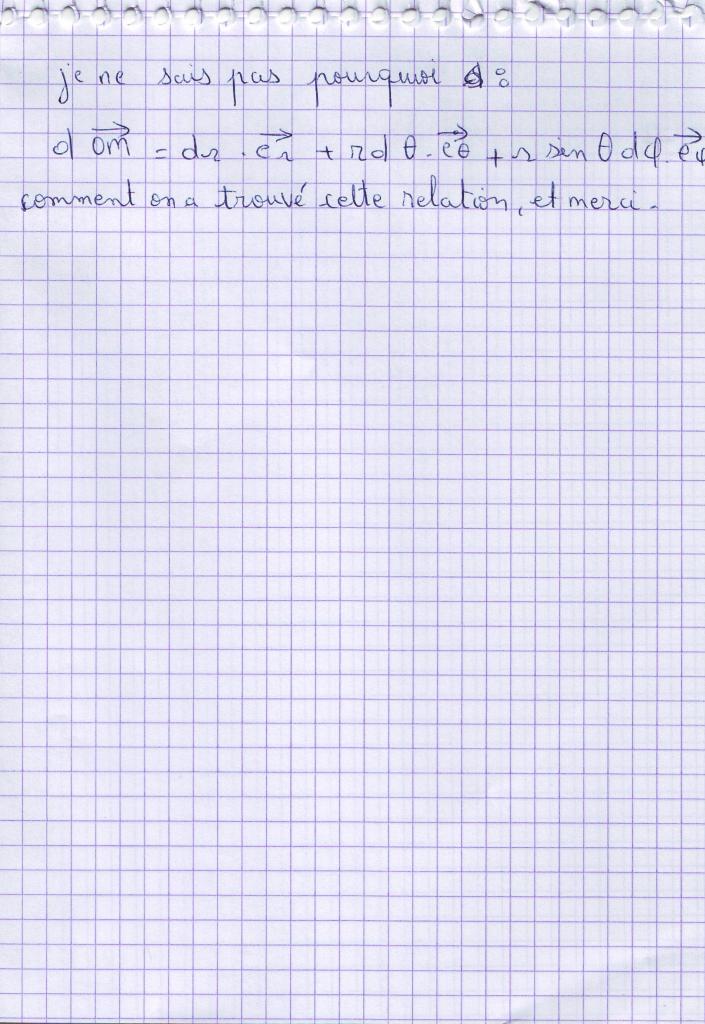 je ne sais pas pourquoi :
d OM⃗ = dr . er⃗ + rd θ . eθ⃗ + r sin θ dφ . eφ⃗
comment on a trouvé cette relation, et merci .